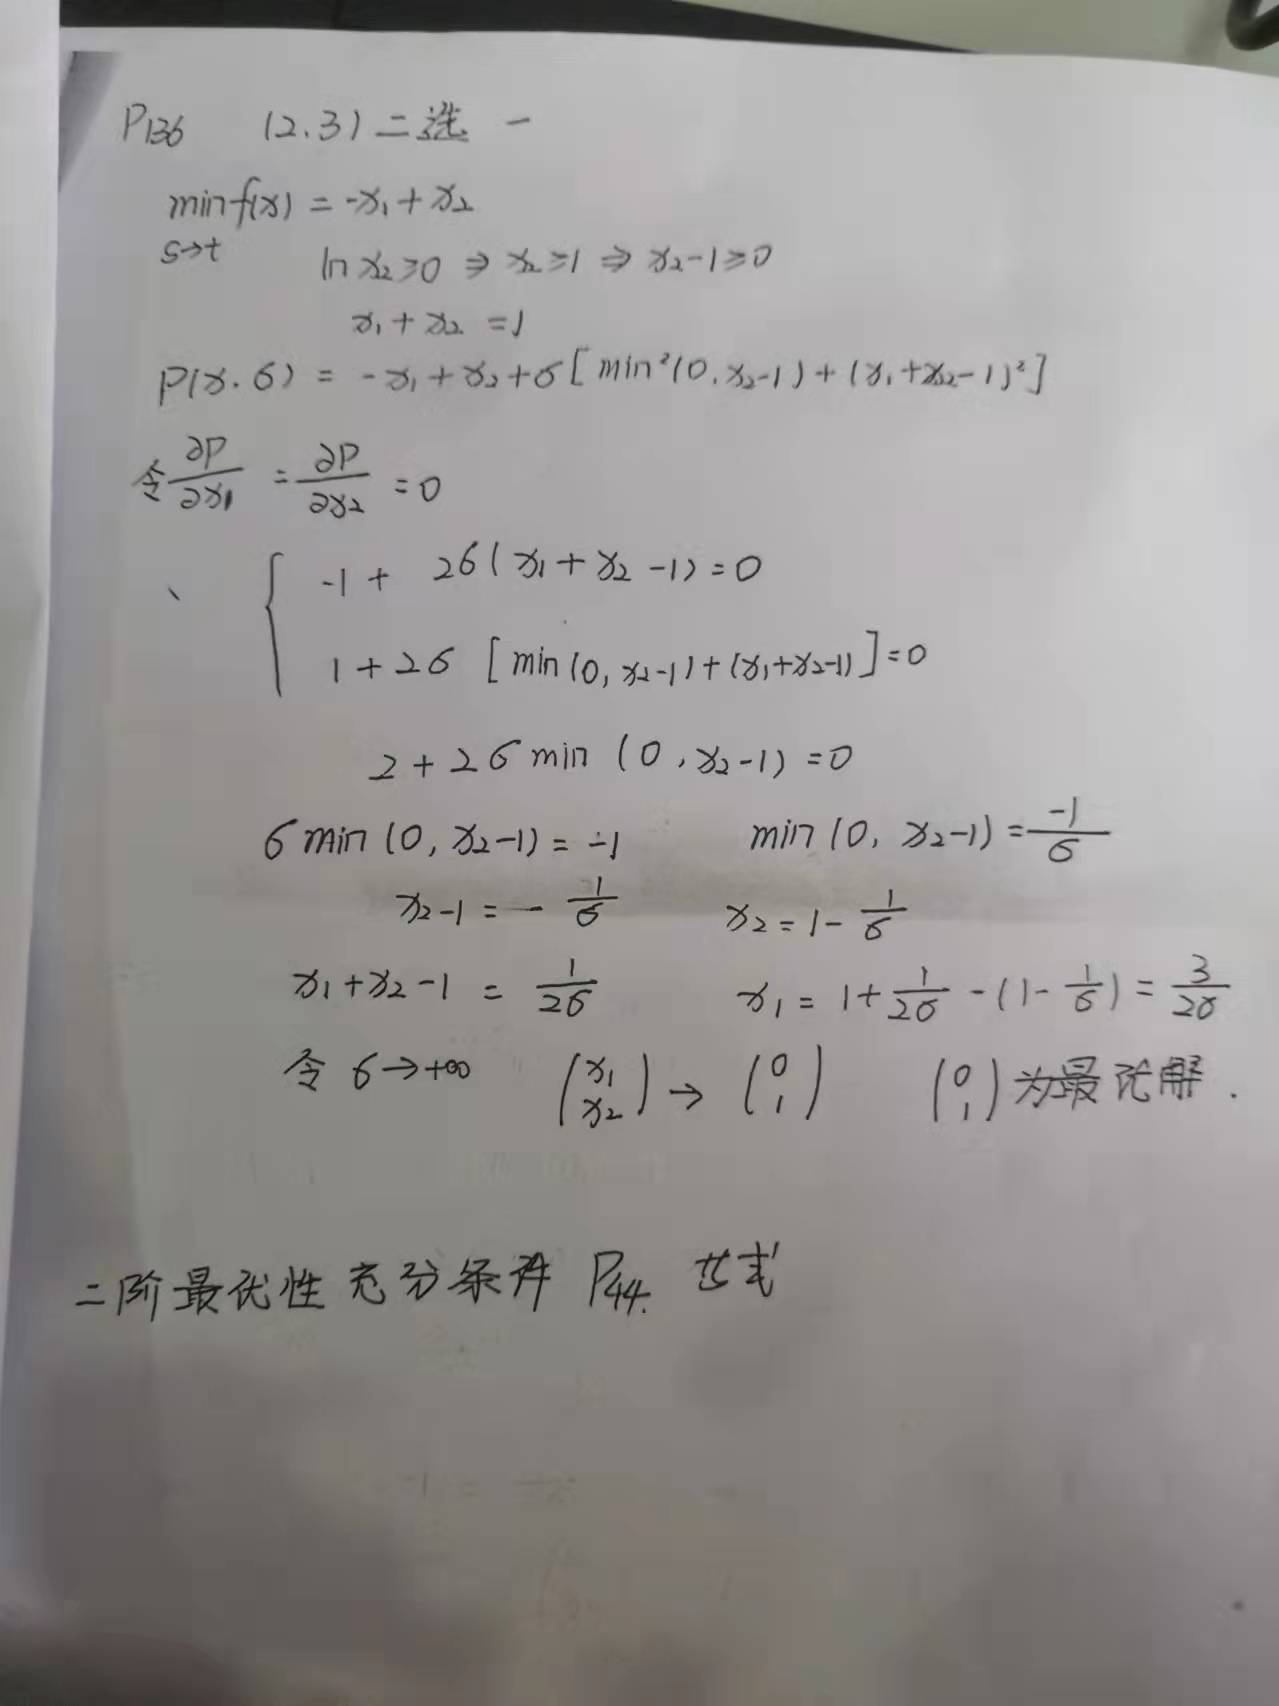 P136 (2.3) 二选一
min f(x) = -x₁ + x₂
s→t ln x₂ ≥ 0 ⇒ x₂ ≥ 1 ⇒ x₂-1 ≥ 0
x₁ + x₂ = 1
P(x.σ) = -x₁ + x₂ + σ[min²(0, x₂-1) + (x₁+x₂-1)²]
令 ∂P/∂x₁ = ∂P/∂x₂ = 0
、 { -1 + 2σ(x₁ + x₂ - 1) = 0
1 + 2σ [min(0, x₂-1) + (x₁+x₂-1)] = 0
2 + 2σ min (0, x₂-1) = 0
σ min (0, x₂-1) = -1 min (0, x₂-1) = -1/σ
x₂-1 = - 1/σ x₂ = 1 - 1/σ
x₁+x₂-1 = 1/2σ x₁ = 1 + 1/2σ - (1 - 1/σ) = 3/2σ
令 σ→+∞ (x₁ x₂) → (0 1) (0 1) 为最优解.
二阶最优性充分条件 P44.